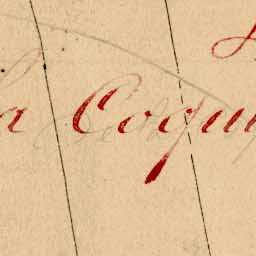 a Coqui